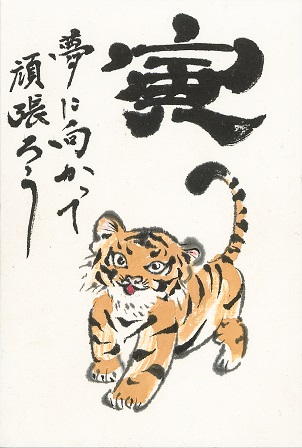 寅
夢に向かって
頑張ろう